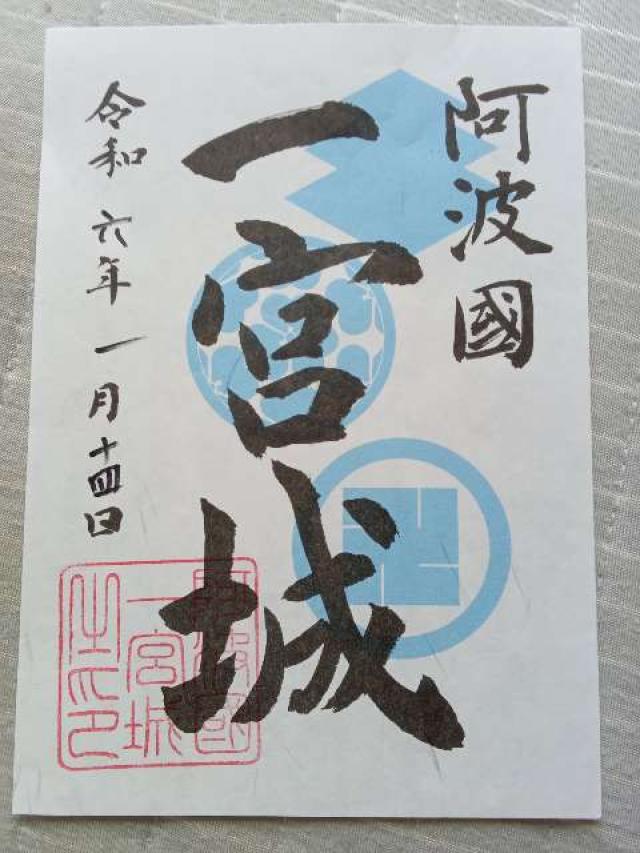 阿波國
一宮城
令和六年一月十四日
阿波國
一宮城
之印